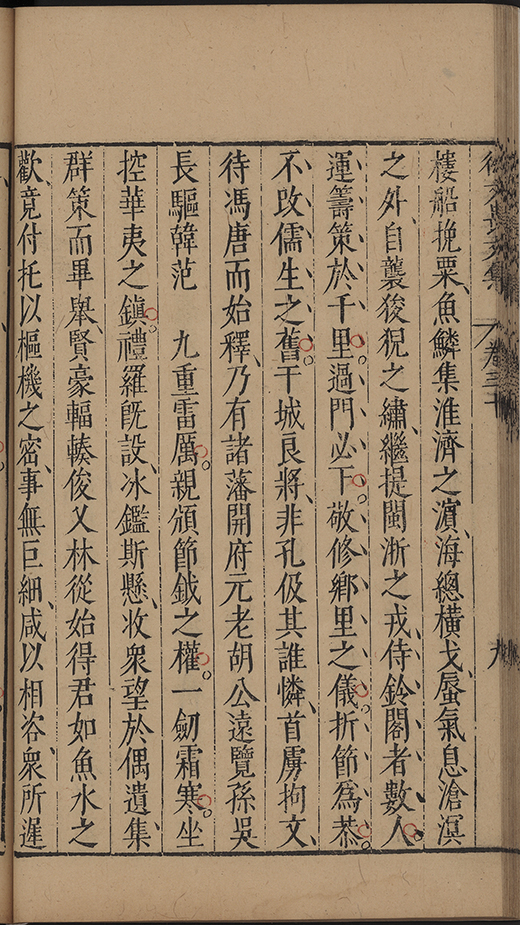 徐文長文集 卷三十 九
樓船挽粟魚鱗集淮濟之濵海總橫戈蜃氣息滄溟
之外自襲狻猊之繡繼提閩浙之戎侍鈴閣者數人
運籌策於千里過門必下敬修鄉里之儀折節爲恭
不改儒生之舊干城良將非孔伋其誰憐首虜拘文
待馮唐而始釋乃有諸藩開府元老胡公遠覽孫吳
長驅韓范 九重雷厲親頒節鉞之權一劒霜寒坐
控華夷之鎮禮羅旣設冰鑑斯懸收衆望於偶遺集
群策而畢舉賢豪輻輳俊乂林從始得君如魚水之
歡竟付托以樞機之密事無巨細咸以相咨衆所遲